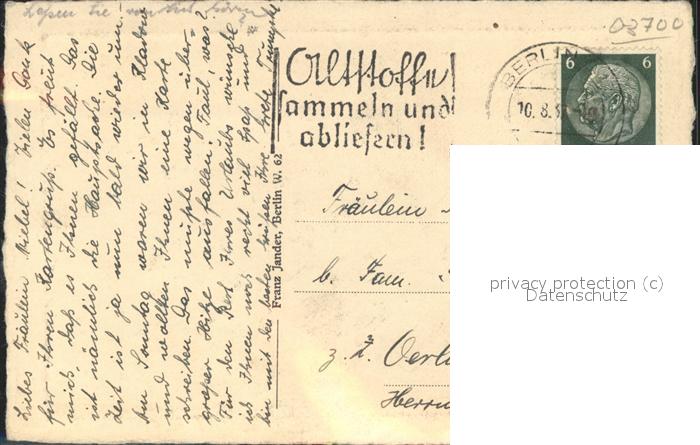 Lassen Sie von sich hören?
03700
Liebes Fräulein Michel! Vielen Dank
für Ihren Kartengruß. Es freut
mich, daß es Ihnen gefällt. Das
ist nämlich die Hauptsache. Die
Zeit ist ja nun bald wieder um.
Am Sonntag waren wir in Kladow
und wollten Ihnen eine Karte
schreiben. Das mußte wegen über-
großer Hitze ausfallen. Faul, was?
Für den Rest Ihres Urlaubs wünsche
ich Ihnen noch recht viel Spaß und
bin mit den besten Grüßen Ihre
Franz Jander, Berlin W. 62
Altstoffe
sammeln und
abliefern!
BERLIN
10.8.3
6 6
Fräulein
b. Fam.
z. Zt.
Herrn
privacy protection (c)
Datenschutz